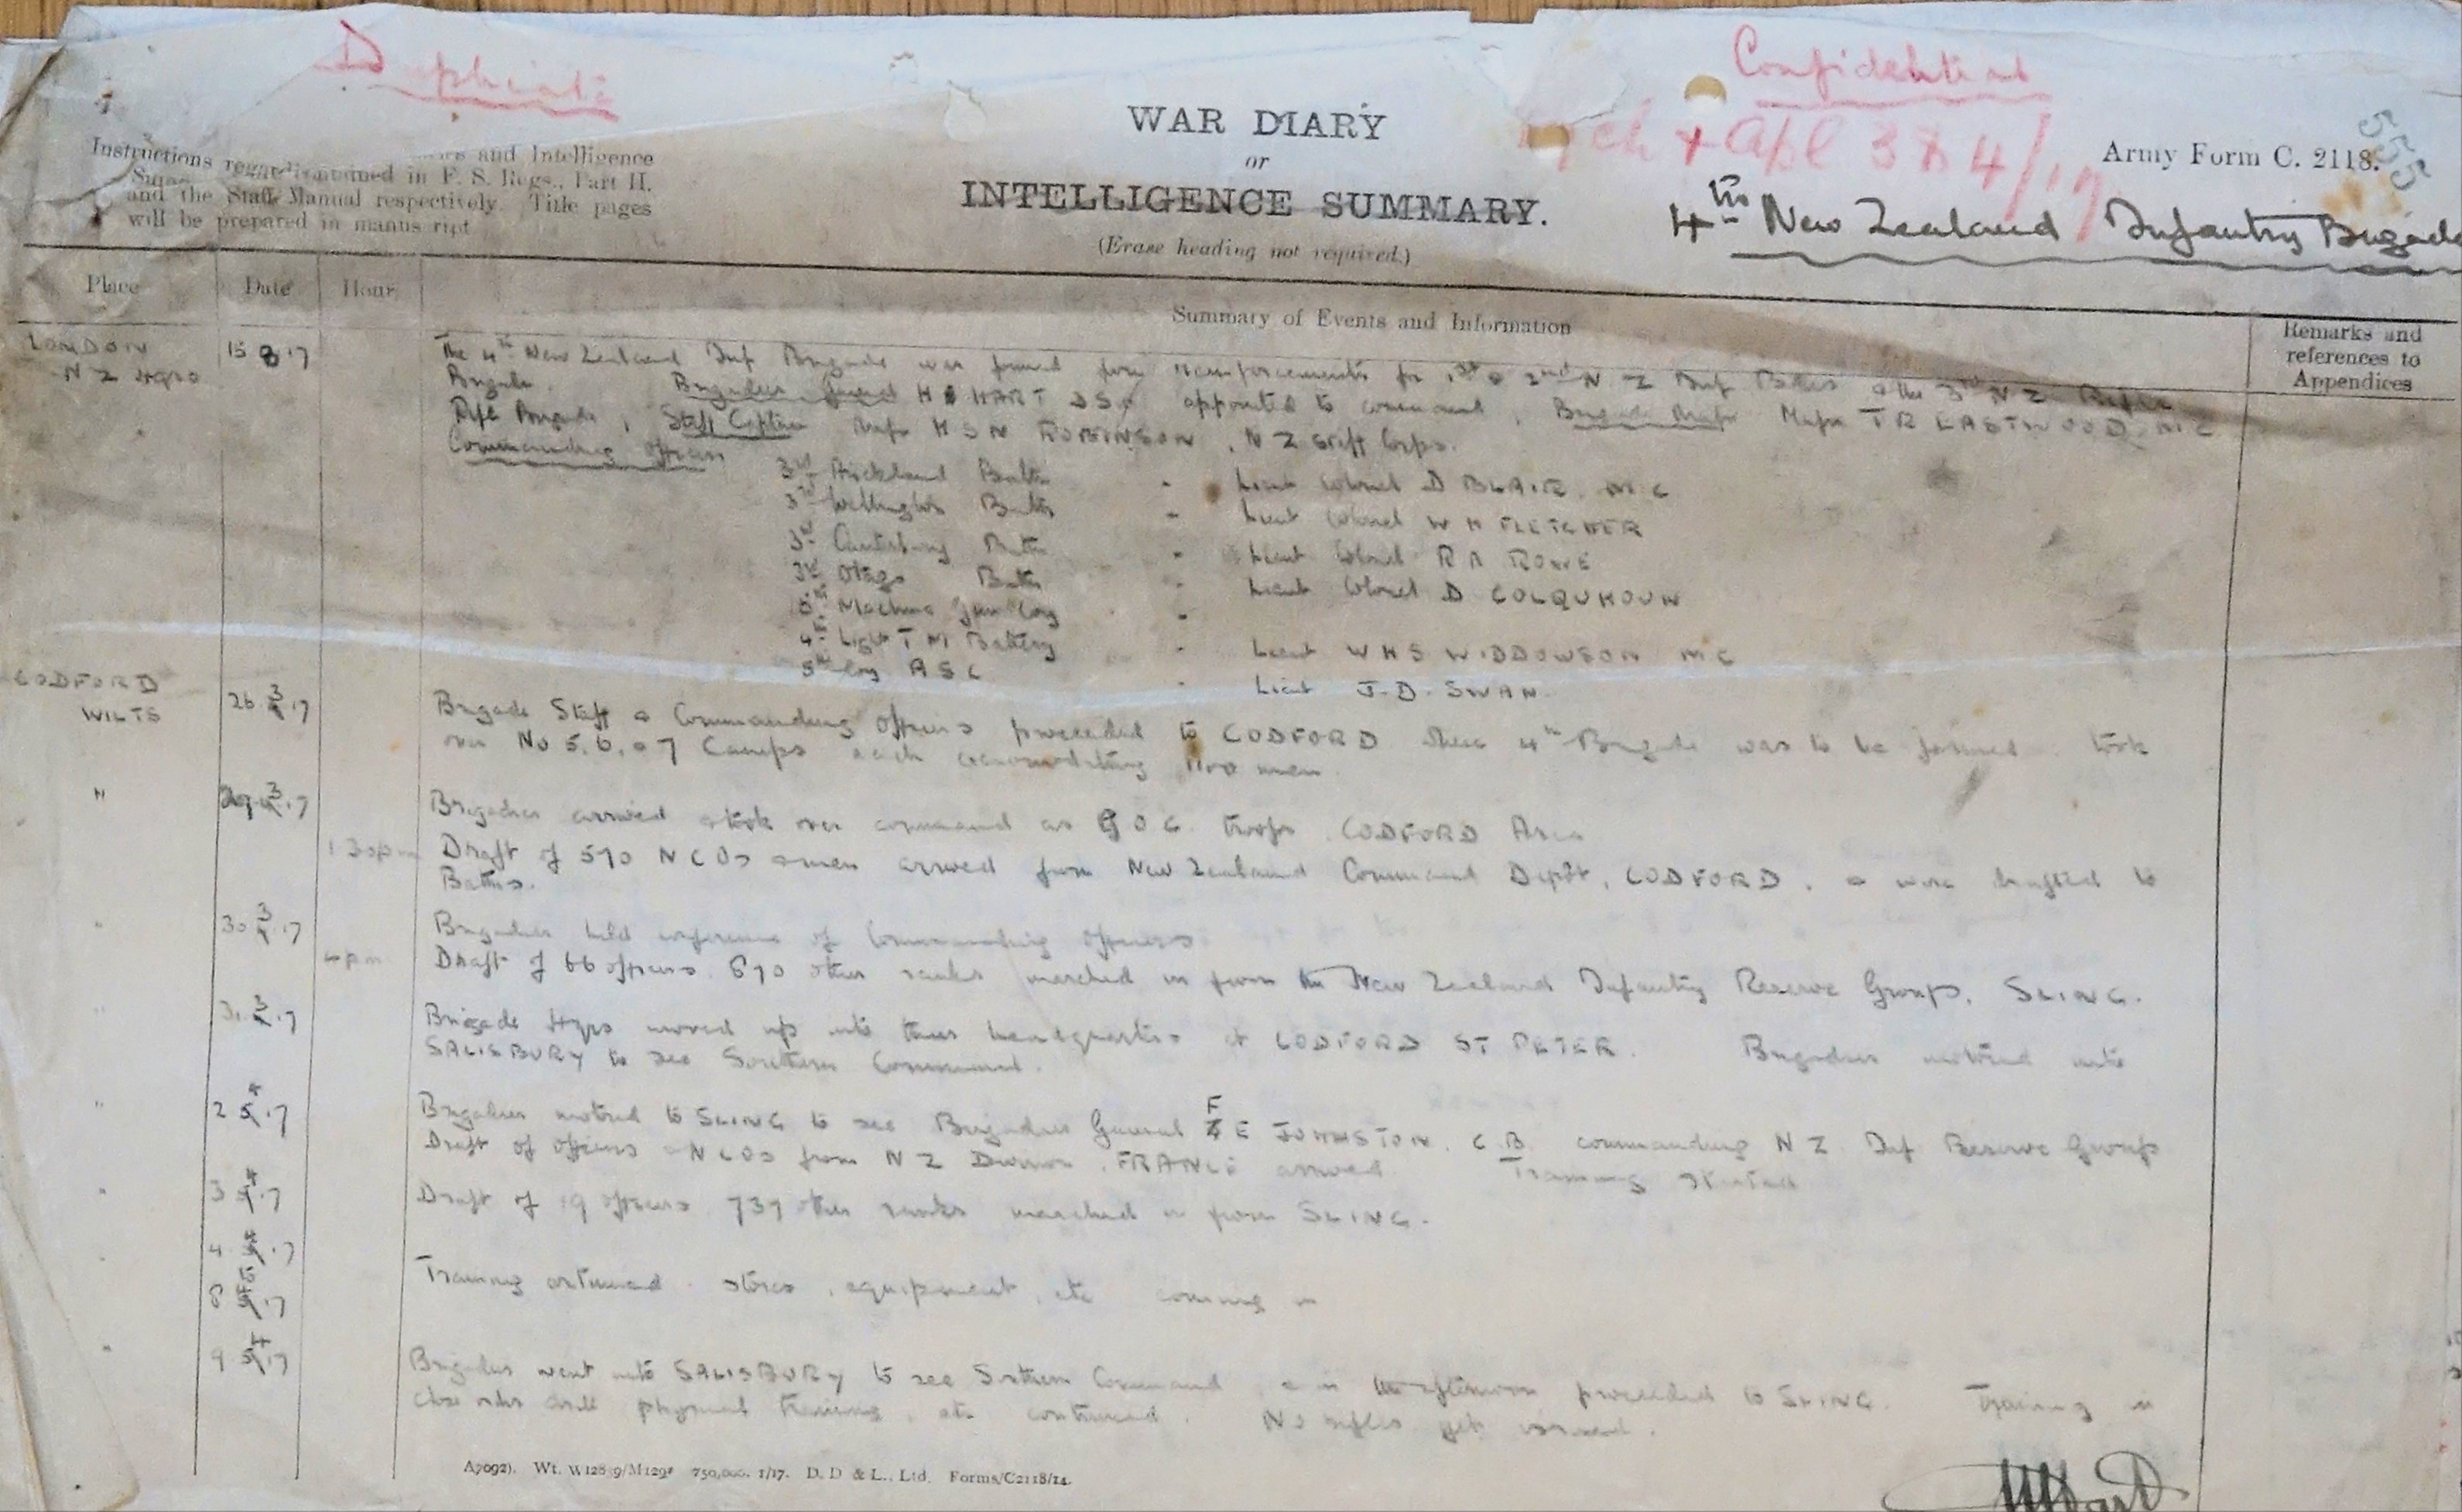 Duplicate
Confidential
Mch + Apl 3 & 4/17
555
WAR DIARY
or
INTELLIGENCE SUMMARY.
(Erase heading not required.)
Army Form C. 2118.
4th New Zealand Infantry Brigade
Instructions and Intelligence
contained in F. S. Regs., Part II.
and the Staff Manual respectively. Title pages
will be prepared in manuscript
Place Date Hour Summary of Events and Information Remarks and references to Appendices
LONDON 15 3.17 The 4th New Zealand Inf Brigade was formed from reinforcements for 1st & 2nd N Z Inf Bdes & the 3rd N Z Rifle
N Z Hqrs Brigade. Brigadier General H HART DSO appointed to command, Brigade Major Major T R EASTWOOD MC
Rifle Brigade, Staff Captain H S N ROBINSON, N Z Staff Corps.
Commanding Officers
3rd Auckland Battn - Lieut Colonel D BLAIR MC
3rd Wellington Battn - Lieut Colonel W H FLETCHER
3rd Canterbury Battn - Lieut Colonel R A ROWE
3rd Otago Battn - Lieut Colonel D COLQUHOUN
5th Machine Gun Coy -
4th Light T M Battery - Lieut W H S WIDDOWSON MC
5th Coy A S C - Lieut J. D. SWAN
CODFORD 26 3.17 Brigade Staff & Commanding Officers proceeded to CODFORD where 4th Brigade was to be formed. Took
WILTS over No 5, 6, & 7 Camps each accomodating 1100 men
" 29 3.17 Brigadier arrived & took over command as G O C. troops CODFORD Area
1 30pm Draft of 590 N C Os & men arrived from New Zealand Command Depôt, CODFORD, & were drafted to
Battns.
" 30 3.17 Brigadier held conference of Commanding Officers
4pm Draft of 66 officers 870 other ranks marched in from the New Zealand Infantry Reserve Group, SLING.
" 31 3.17 Brigade Hqrs moved up into their headquarters at CODFORD ST PETER. Brigadier motored into
SALISBURY to see Southern Command.
" 2 4.17 Brigadier motored to SLING to see Brigadier General F E JOHNSTON. C B. commanding N Z Inf Reserve Group
Draft of officers & N C Os from N Z Division, FRANCE arrived Training started
" 3 4.17 Draft of 19 officers 737 other ranks marched in from SLING.
" 4 4.17
to
8 4.17 Training continued. stores, equipment, etc coming in
" 9 4.17 Brigadier went into SALISBURY to see Southern Command & in the afternoon proceeded to SLING. Training in
close order drill physical training, etc continued. No rifles yet issued.
A7092). Wt. W12839/M1293 750,000. 1/17. D. D & L., Ltd. Forms/C2118/14.